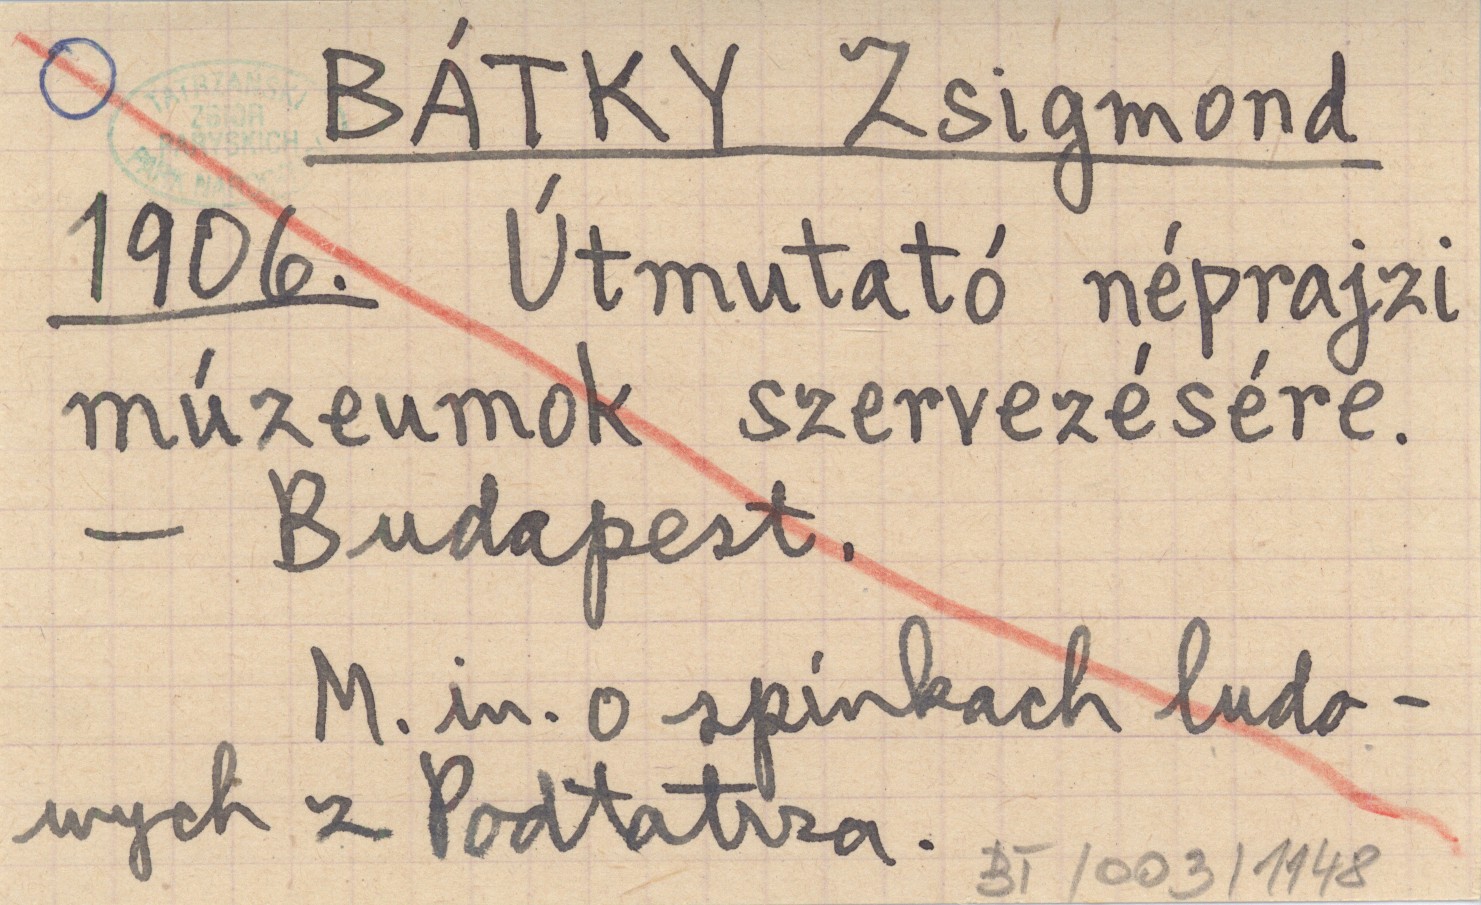 TATRZAŃSKI
ZBIÓR
PARYSKICH
PARK
BÁTKY Zsigmond
1906. Útmutató néprajzi
múzeumok szervezésére.
— Budapest.
M. in. o spinkach ludo-
wych z Podtatrza.
BT/003/1148